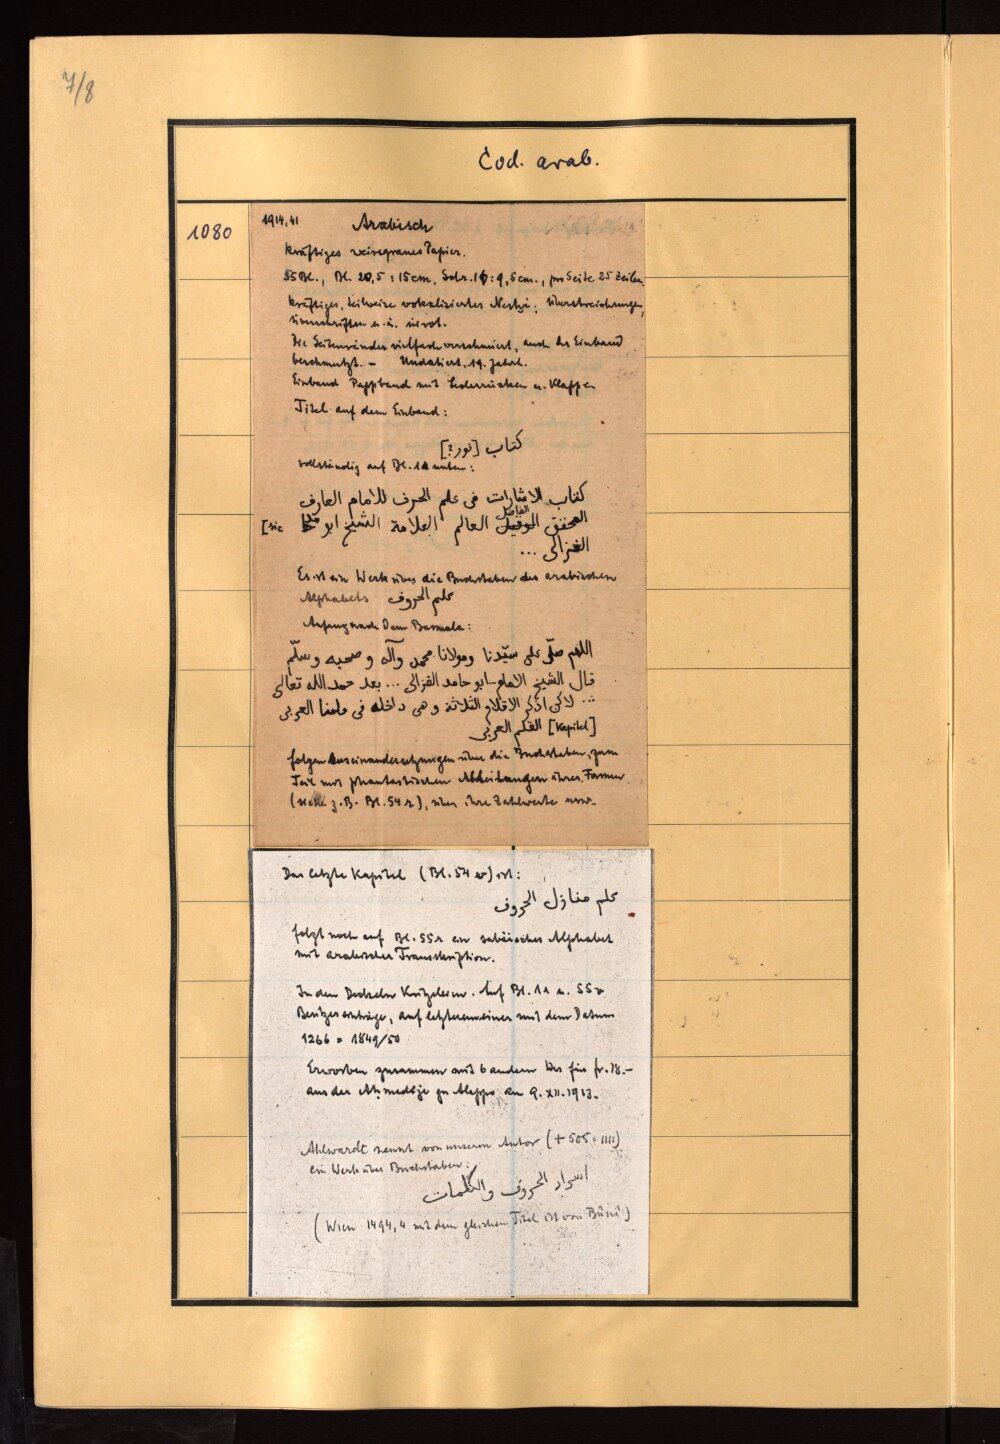 7/8
Cod. arab.
1080
1914,41 Arabisch
kräftiges weissgraues Papier.
55 Bl., Bl. 20,5 : 15 cm, Schr. 16 : 9,5 cm., pro Seite 25 Zeilen
kräftiges, teilweise vokalisiertes Neshi; Überstreichungen,
Überschriften u. ä. in rot.
Die Seitenränder vielfach verschmiert, auch der Einband
beschmutzt. – Undatiert, 19. Jahrh.
Einband Pappband mit Lederrücken u. Klappe
Titel auf dem Einband:
كتاب [نور?]
vollständig auf Bl. 1a unten:
كتاب الاشارات فى علم الحرف للامام العارف
المحقق الفاضل العالم العلامة الشيخ ابو [sic
الغزالى ...
Es ist ein Werk über die Buchstaben des arabischen
Alphabets علم الحروف
Anfang nach dem Basmala:
اللهم صلّ على سيّدنا ومولانا محمد وآله وصحبه وسلّم
قال الشيخ الامام ... ابو حامد الغزالى ... بعد حمد الله تعالى
... لاكن اذكر الاقلام الثلاثة وهى داخله فى العربى
[Kapitel] القلم العربى
folgen Auseinandersetzungen über die Buchstaben, zum
Teil mit phantastischen Ableitungen ihrer Formen
(siehe z. B. Bl. 54 r), über ihre Zahlwerte usw.
Das letzte Kapitel (Bl. 54 v) ist:
علم منازل الحروف
folgt noch auf Bl. 55r ein sabäisches Alphabet
mit arabischer Transskription.
In den Deckeln Kritzeleien. Auf Bl. 1a u. 55v
Besitzereinträge, auf letzterem einer mit dem Datum
1266 = 1849/50
Erworben zusammen mit 6 andern Hss für fr. 78.–
aus der Ahmedije zu Aleppo am 9. XII. 1913.
Ahlwardt nennt von unserm Autor (+ 505 = 1111)
ein Werk über Buchstaben:
اسرار الحروف والكلمات
(Wien 1494,4 mit dem gleichen Titel ist von Bûnî)